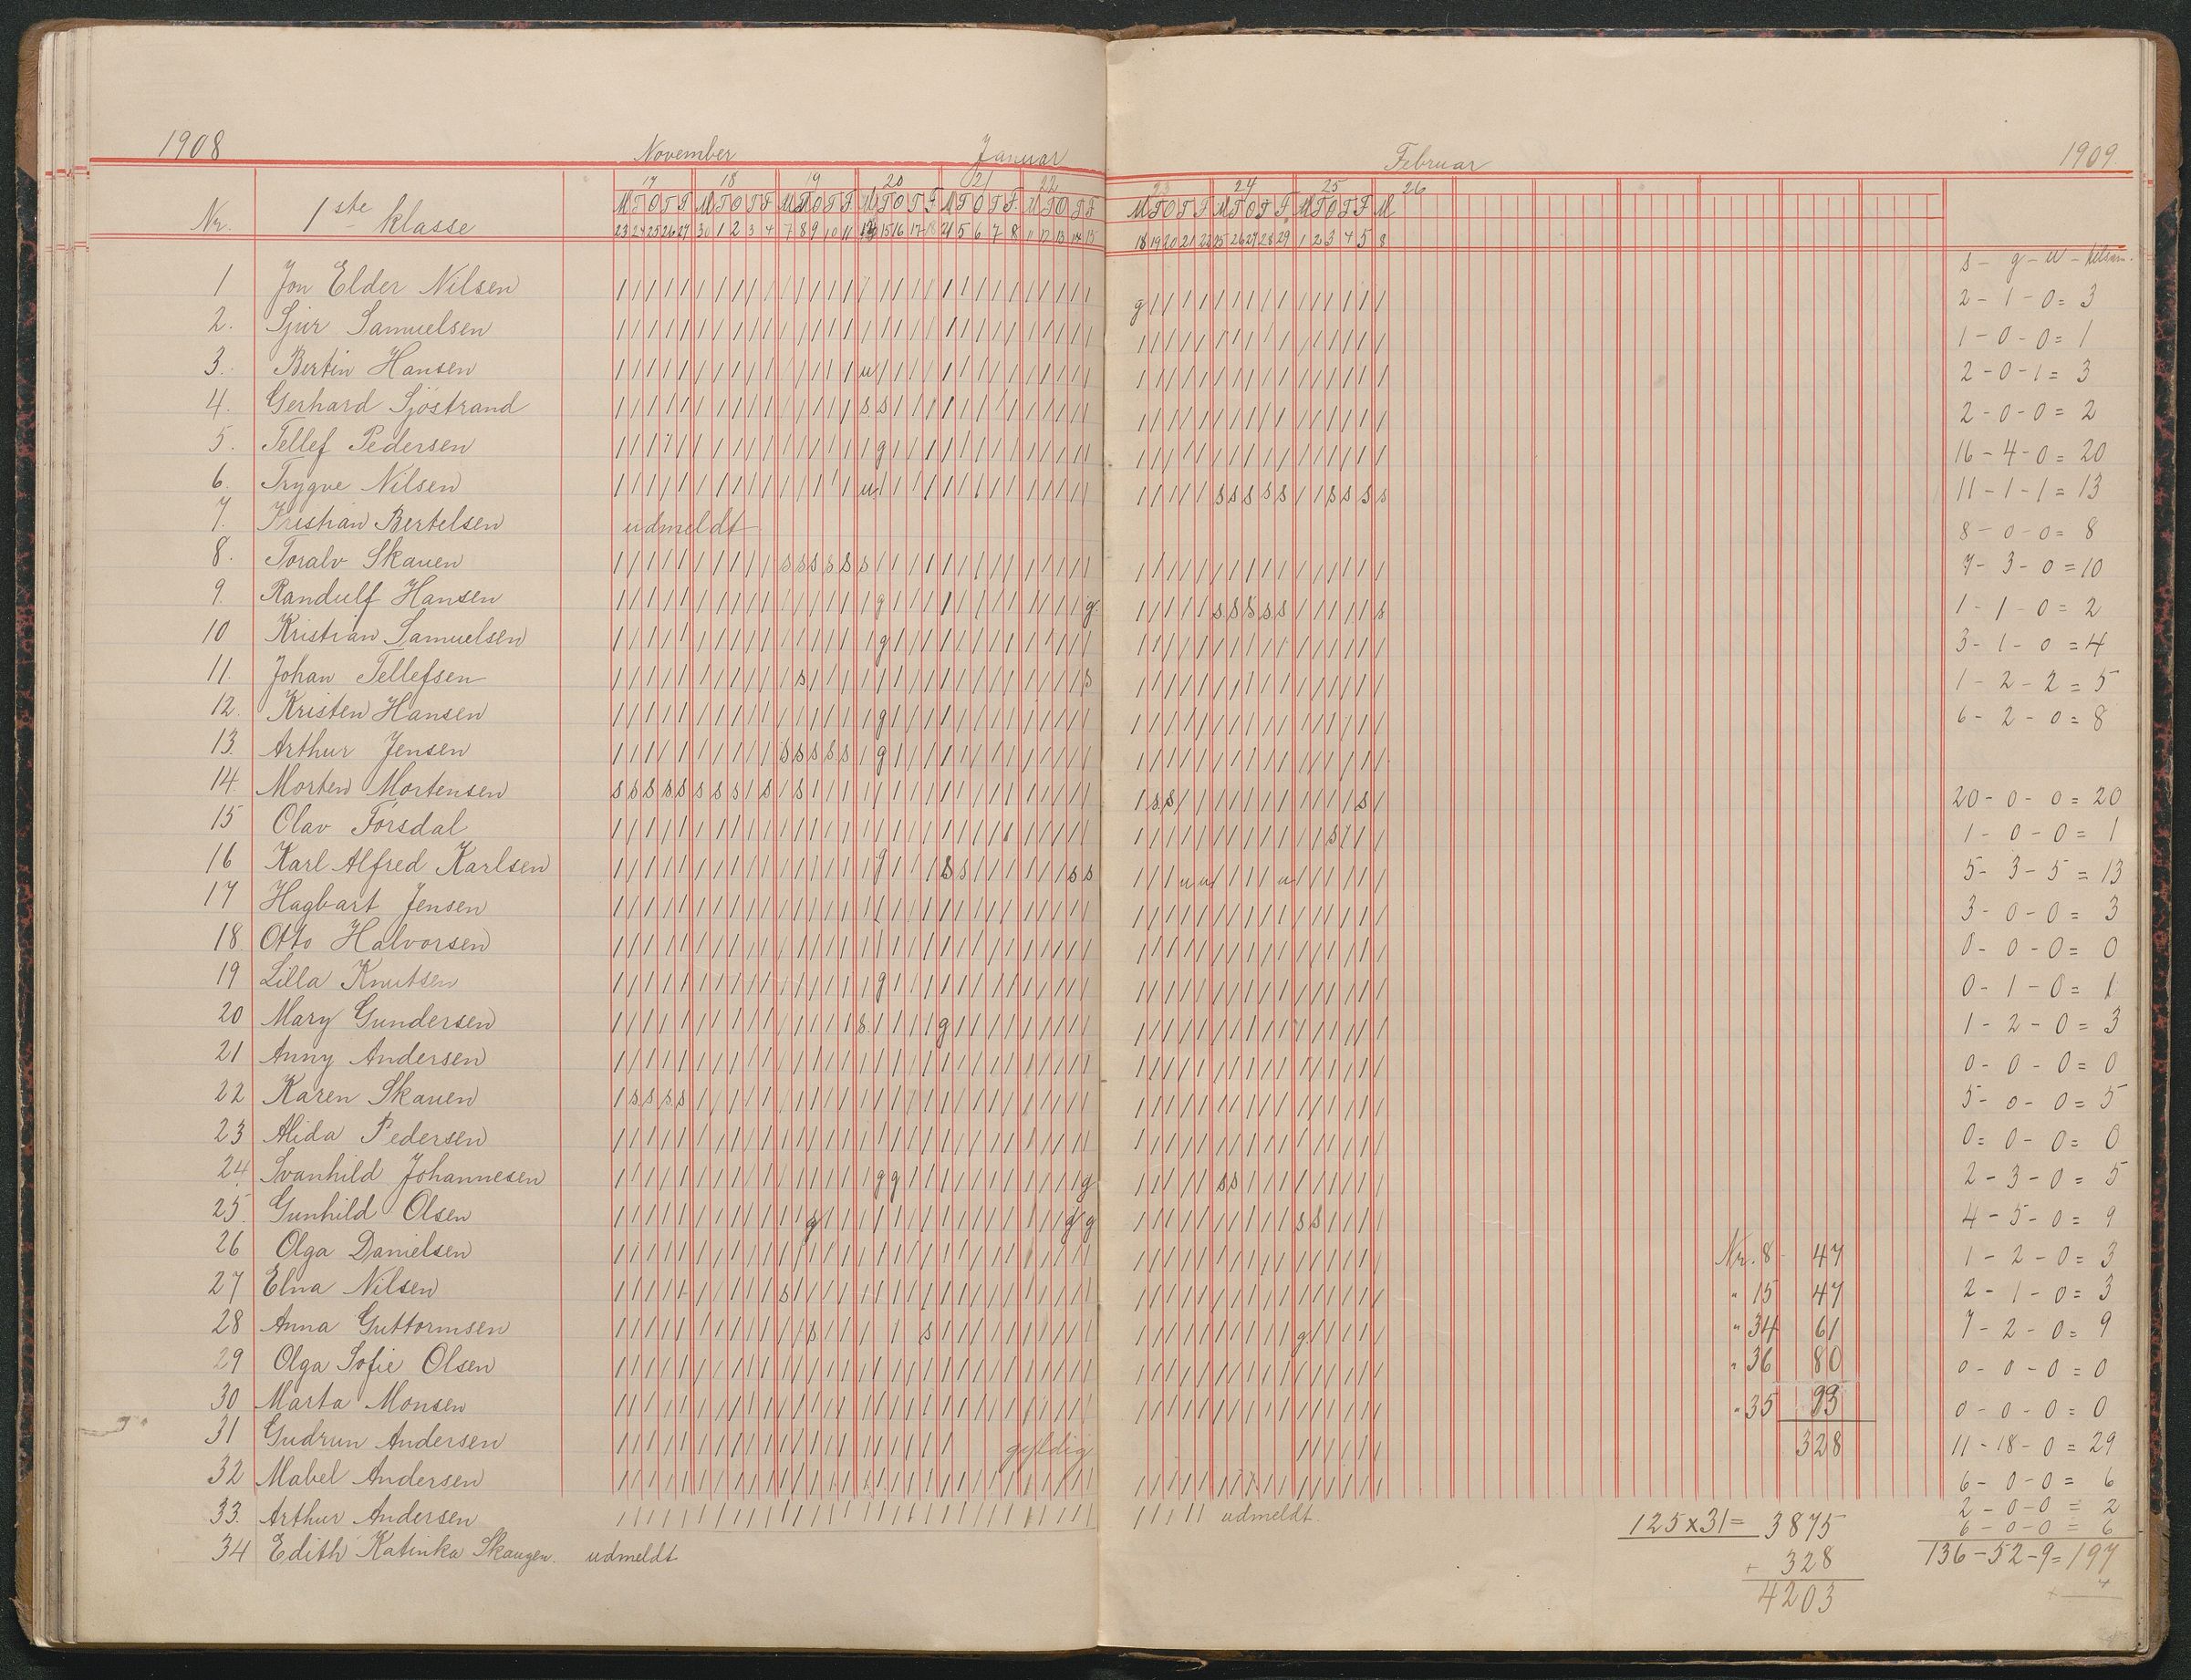 1908 November Januar Februar 1909.
17 18 19 20 21 22 23 24 25 26
M T O T F M T O T F M T O T F M T O T F M T O T F M T O T F M T O T F M T O T F M T O T F M
Nr. 1ste klasse 23 24 25 26 27 30 1 2 3 4 7 8 9 10 11 15 16 17 18 4 5 6 7 8 11 12 13 14 15 18 19 20 21 22 25 26 27 28 29 1 2 3 4 5 8
s - g - u - tilsam.
1 Jon Elder Nilsen g 2 - 1 - 0 = 3
2. Sjur Samuelsen 1 - 0 - 0 = 1
3. Bertin Hansen u 2 - 0 - 1 = 3
4. Gerhard Sjöstrand s s 2 - 0 - 0 = 2
5. Tellef Pedersen g 16 - 4 - 0 = 20
6. Trygve Nilsen u s s s s s s s s s 11 - 1 - 1 = 13
7. Kristian Bertelsen udmeldt 8 - 0 - 0 = 8
8. Toralv Skauen s s s s s s 7 - 3 - 0 = 10
9. Randulf Hansen g g s s s s s s 1 - 1 - 0 = 2
10 Kristian Samuelsen g 3 - 1 - 0 = 4
11. Johan Tellefsen s s 1 - 2 - 2 = 5
12. Kristen Hansen g 6 - 2 - 0 = 8
13. Arthur Jensen s s s s s g
14. Morten Mortensen s s s s s s s s s s s s s 20 - 0 - 0 = 20
15 Olav Torsdal s 1 - 0 - 0 = 1
16 Karl Alfred Karlsen g s s s s u u u 5 - 3 - 5 = 13
17 Hagbart Jensen 3 - 0 - 0 = 3
18. Otto Halvorsen 0 - 0 - 0 = 0
19 Lilla Knutsen g 0 - 1 - 0 = 1
20 Mary Gundersen s g 1 - 2 - 0 = 3
21 Anny Andersen 0 - 0 - 0 = 0
22 Karen Skauen s s s s 5 - 0 - 0 = 5
23 Alida Pedersen 0 = 0 - 0 = 0
24 Svanhild Johannesen g g g s s 2 - 3 - 0 = 5
25. Gunhild Olsen g g g s s 4 - 5 - 0 = 9
26 Olga Danielsen Nr. 8 47 1 - 2 - 0 = 3
27 Elna Nilsen s " 15 47 2 - 1 - 0 = 3
28 Anna Guttormsen s s g " 34 61 7 - 2 - 0 = 9
29 Olga Sofie Olsen " 36 80 0 - 0 - 0 = 0
30 Marta Monsen " 35 93 0 - 0 - 0 = 0
31 Gudrun Andersen gyldig 328 11 - 18 - 0 = 29
32 Mabel Andersen 6 - 0 - 0 = 6
33. Arthur Andersen udmeldt. 2 - 0 - 0 = 2
125 x 31 = 3875 6 - 0 - 0 = 6
34 Edith Katinka Skaugen. udmeldt + 328 136 - 52 - 9 = 197
4203